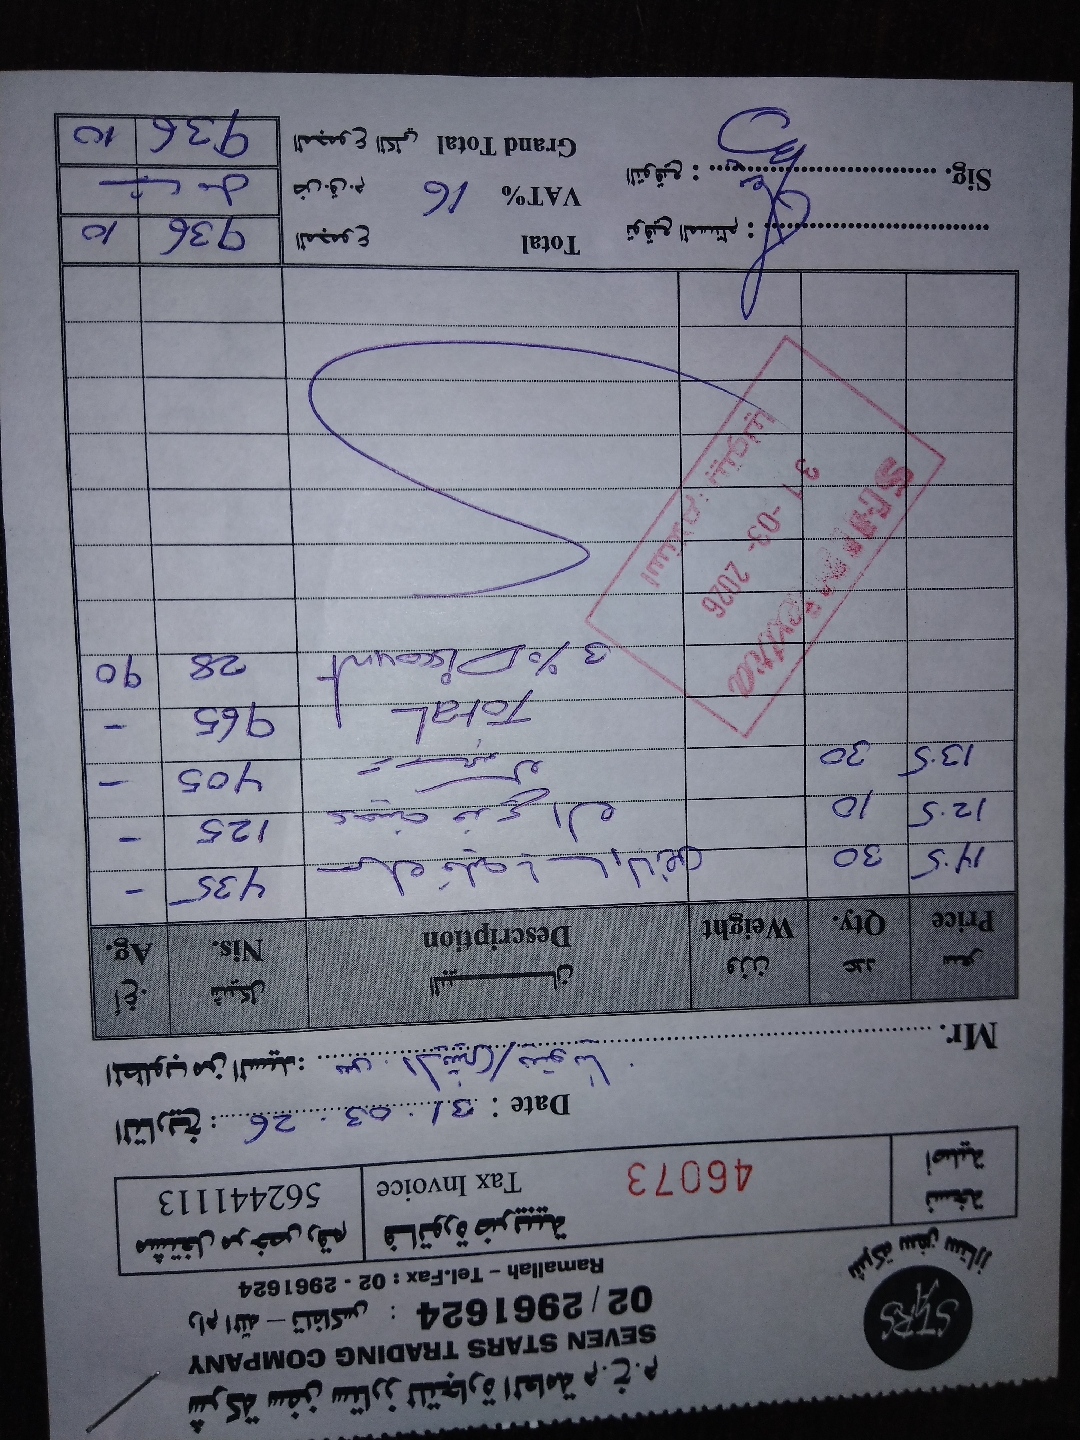 شركة سفن ستارز للتجارة العامة م.خ.م
SEVEN STARS TRADING COMPANY
02 / 2961624 : رام الله - تلفاكس
Ramallah - Tel.Fax : 02 - 2961624
STRS
شركة سفن ستارز
نسخة أصلية
46073
فاتورة ضريبية
Tax Invoice
مشتغل مرخص رقم
562441113
Date : 31 . 03 . 26 : التاريخ
Mr. المطلوب من السيد :
سعر عدد وزن البيـــــان شيكل أغ.
Price Qty. Weight Description Nis. Ag.
14.5 30 435 -
12.5 10 125 -
13.5 30 405 -
Total 965 -
3% Discount 28 90
استلام
31 -03- 2026
Total المجموع 936 10
توقيع المستلم :
VAT% 16 ض.ق.م
Sig. التوقيع :
Grand Total المجموع الكلي 936 10